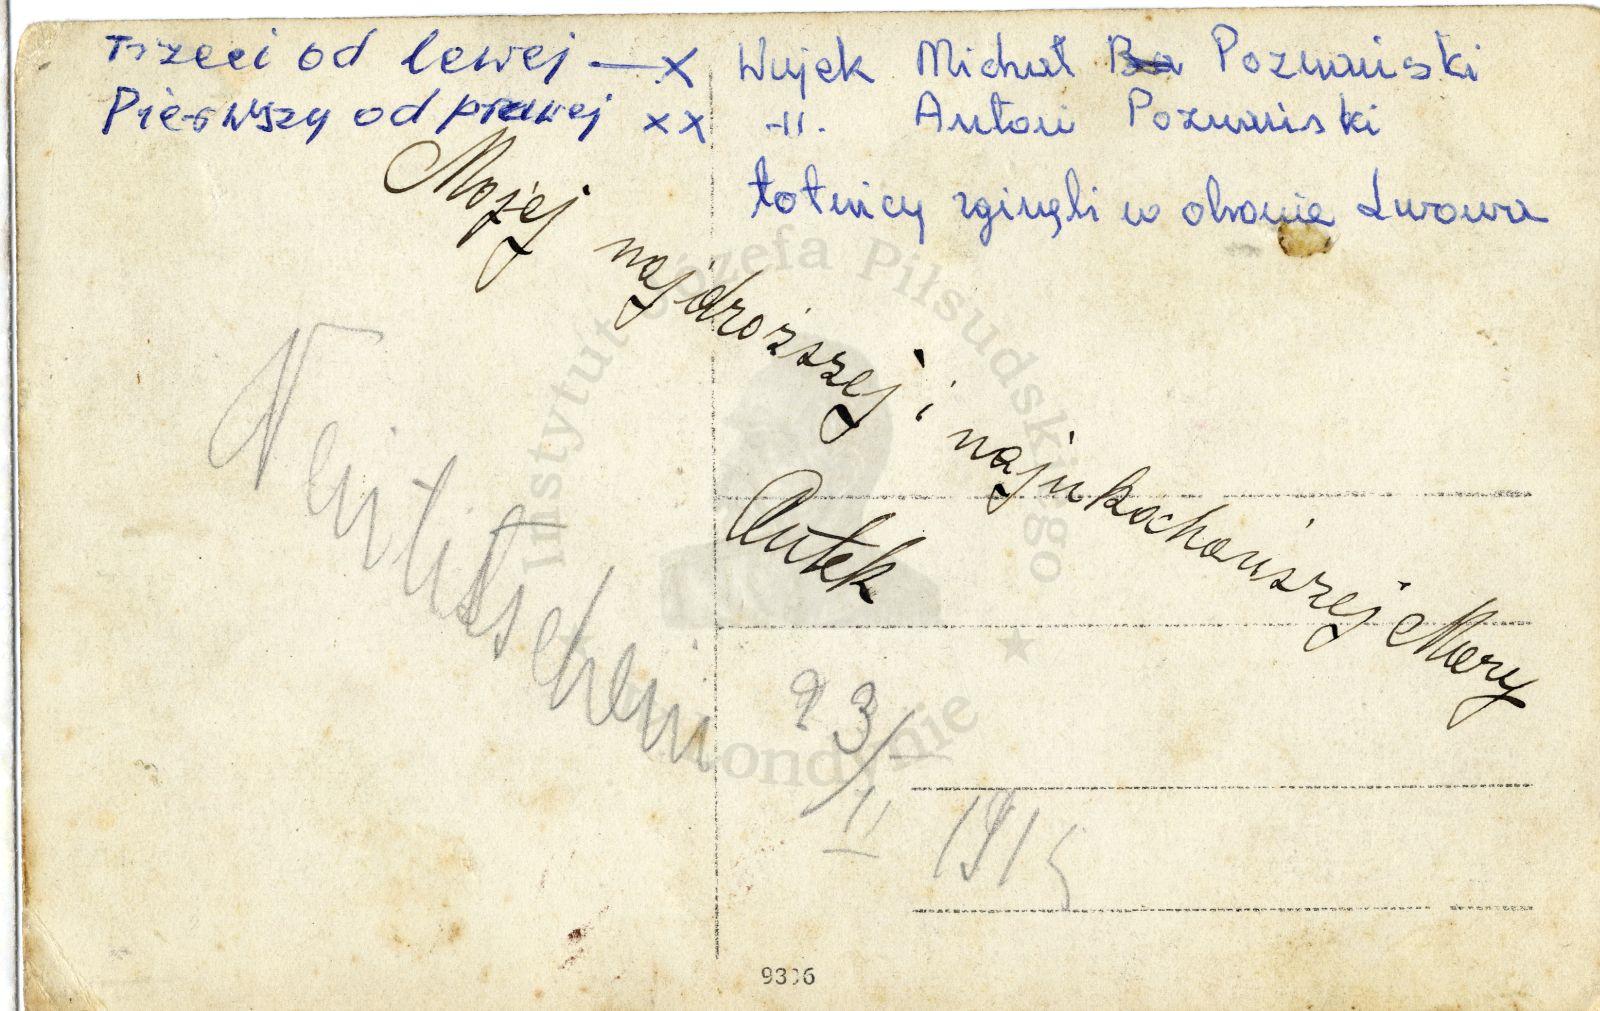 Trzeci od lewej — x Wujek Michał Poznański
Pierwszy od prawej xx -||- Antoni Poznański
Lotnicy zginęli w obronie Lwowa
Mojej najdroższej i najukochańszej Mary
Antek
Neutitschein
23/II 1915
9336
Instytut Józefa Piłsudskiego
w Londynie